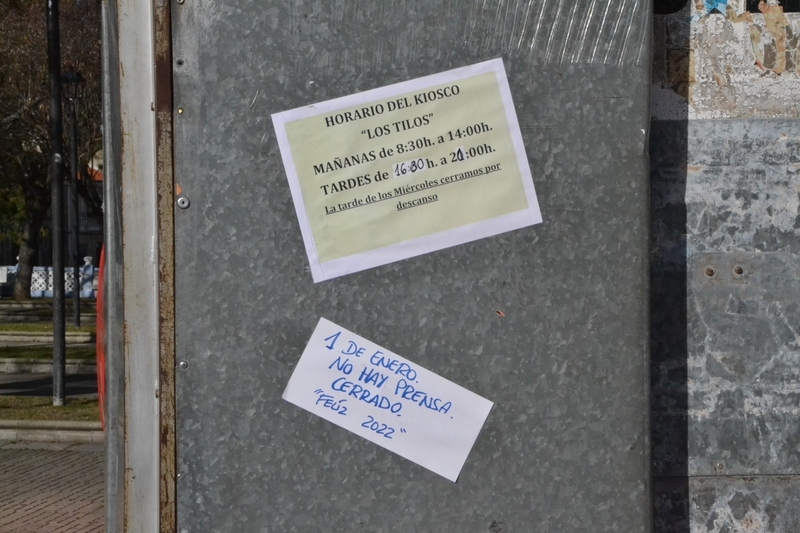 HORARIO DEL KIOSCO
"LOS TILOS"
MAÑANAS de 8:30h. a 14:00h.
TARDES de 16:30 h. a 21:00h.
La tarde de los Miércoles cerramos por
descanso
1 DE ENERO.
NO HAY PRENSA.
CERRADO.
"FELÍZ 2022"